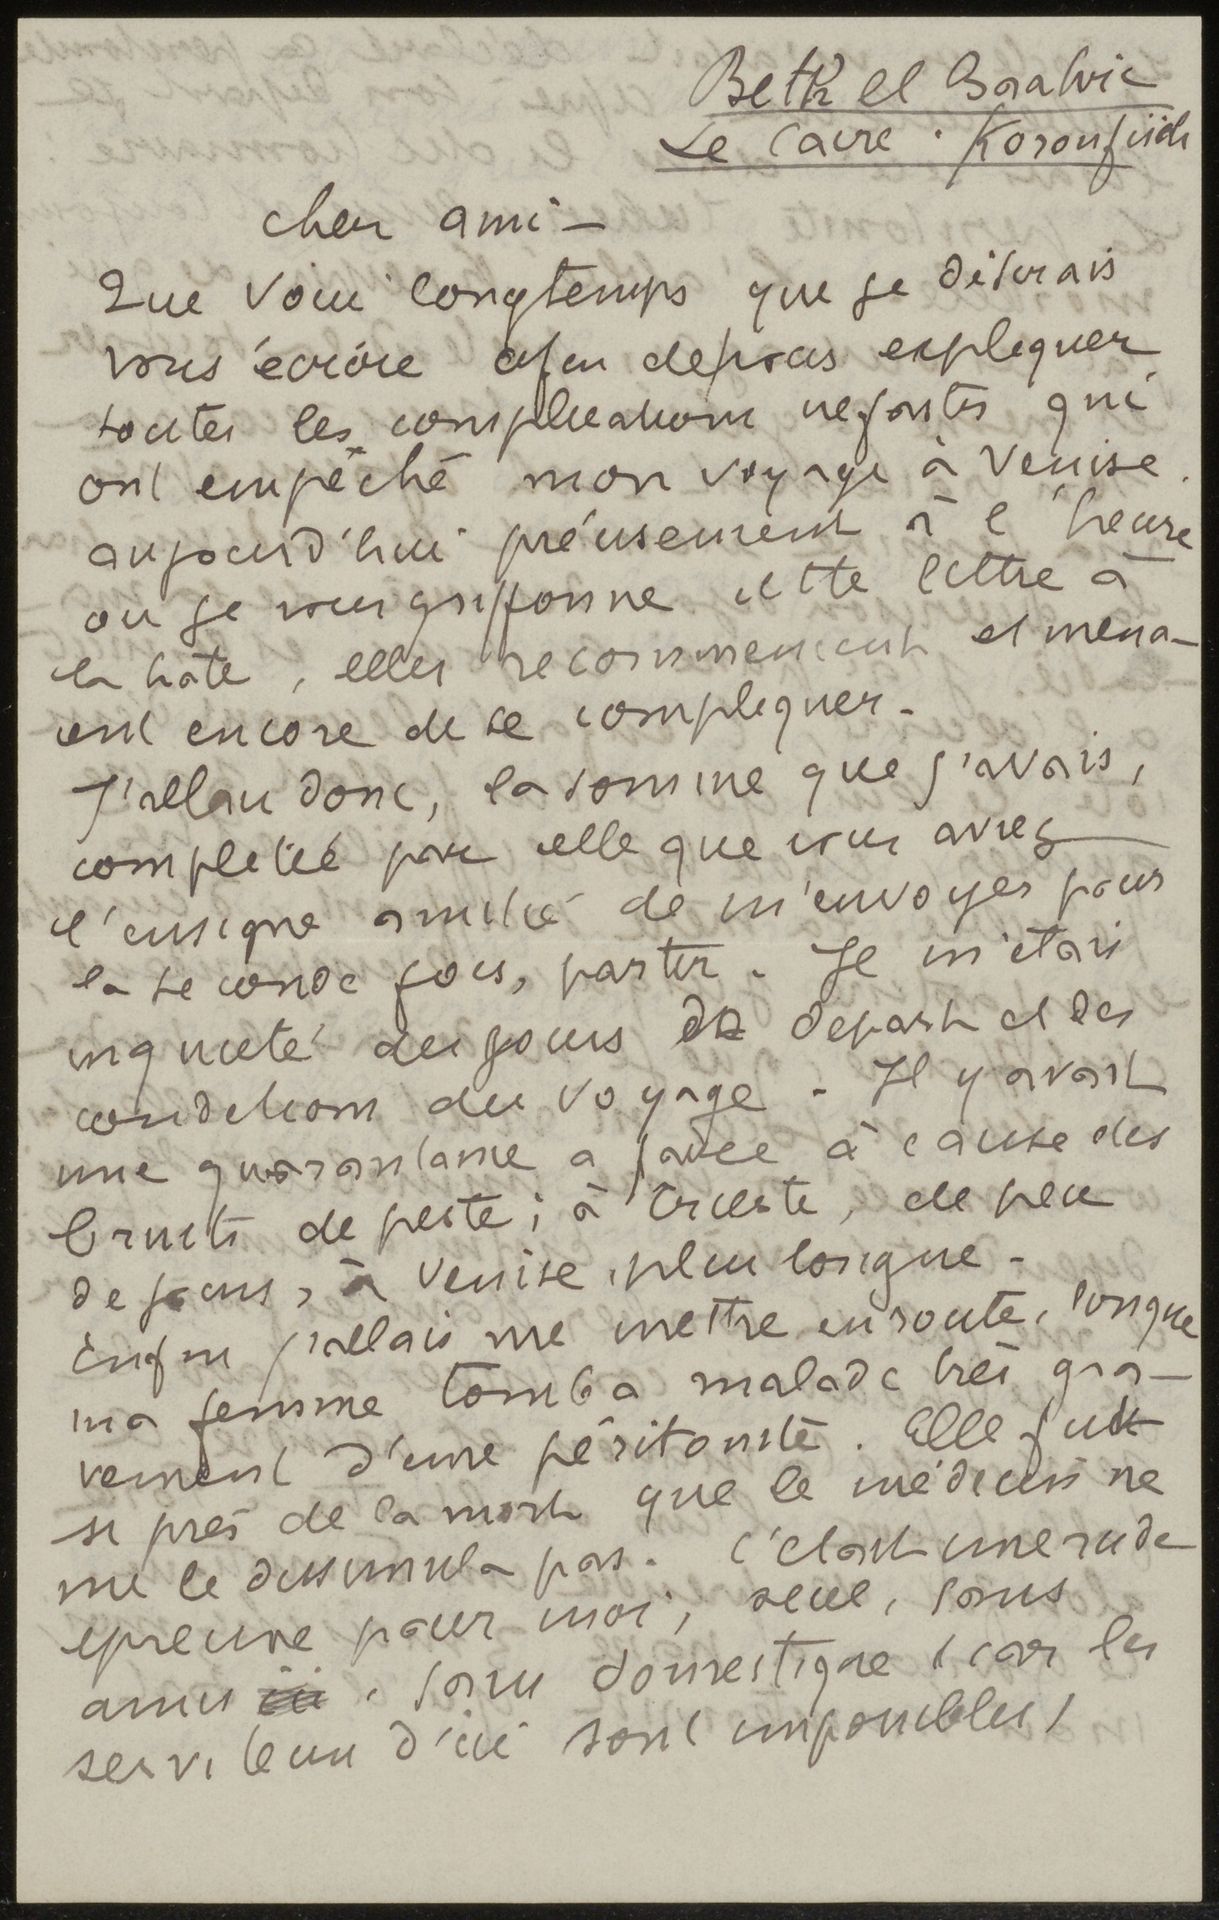 Beth el Baalvic
Le Caire . Koronfisch
cher ami –
Que voici longtemps que je désirais
vous écrire afin de vous expliquer
toutes les complications nefastes qui
ont empêché mon voyage à Venise.
aujourd'hui précisement à l'heure
ou je vous griffonne cette lettre à
la hate, elles recommencent et mena–
cent encore de se compliquer –
J'allais donc, la somme que j'avais,
completée par celle que vous aviez
l'insigne amitié de m'envoyer pour
la seconde fois, partir. Je m'étais
inquieté des jours de depart et des
conditions du voyage. Il y avait
une quarantaine a faire à cause des
bruits de peste; à Trieste, de peu
de jours, à Venise, plus longue –
Enfin j'allais me mettre en route, lorsque
ma femme tomba malade très gra–
vement d'une péritonite. Elle fut
si près de la mort que le médecin ne
me le dissimula pas. C'etait une rude
epreuve pour moi, seul, sans
amis, sans domestique (car les
serviteurs d'ici sont impossibles)